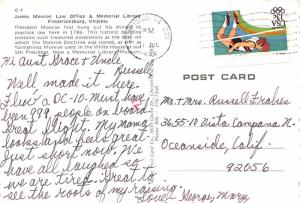 C-1
James Monroe Law Office & Memorial Library
Fredericksburg, Virginia
President Monroe first hung out his shingle to
practice law here in 1786. This historic property
contains desk on
which the Monroe Doctrine was signed, as well as
furnishings Monroe used in the White House
Now a Memorial Museum
PM
JUL
POST CARD
Hi Aunt Grace & Uncle
Russell
Well made it here.
Flew a DC-10. Must have
been 999 people on board
Great flight. My Mama
looks and feels great
Just short now. We
have all laughed so
we are tired. Great to
see the roots of my raising.
Love George, Mary
Mr + Mrs. Russell Frakes
3655-10 Vista Campana N.
Oceanside, Calif.
92056